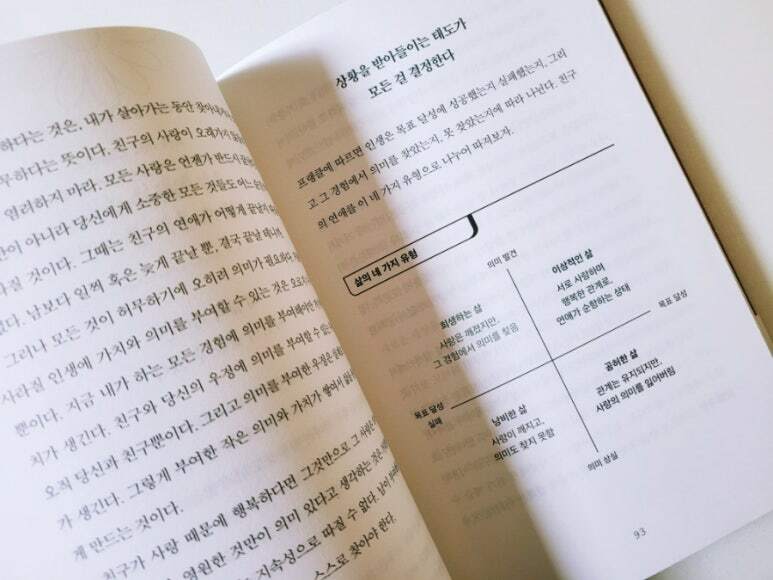 하다는 것은, 내가 살아가는 동안 찾아
무하다는 뜻이다. 친구의 사랑이 오래가지
염려하지 마라. 모든 사랑은 언젠가 반드시
만이 아니라 당신에게 소중한 모든 것들도 어느
라질 것이다. 그때는 친구의 연애가 어떻게 끝날지
없다. 남보다 일찍 혹은 늦게 끝날 뿐, 결국 끝날 테니까.
그러나 모든 것이 허무하기에 오히려 의미가 필요하다.
사라질 인생에 가치와 의미를 부여할 수 있는 것은 오로지
뿐이다. 지금 내가 하는 모든 경험에 의미를 부여해야만
치가 생긴다. 친구와 당신의 우정에 의미를 부여할 수 있는
오직 당신과 친구뿐이다. 그리고 의미를 부여한 우정은
가 생긴다. 그렇게 부여한 작은 의미와 가치가 쌓여서
게 만드는 것이다.
친구가 사랑 때문에 행복하다면 그것만으로 그 사랑은
영원한 것만이 의미 있다고 생각하는 것은
지속성으로 따질 수 없다. 남이
스스로 찾아야 한다.
상황을 받아들이는 태도가
모든 걸 결정한다
프랭클에 따르면 인생은 목표 달성에 성공했는지 실패했는지, 그리
고 그 경험에서 의미를 찾았는지, 못 찾았는지에 따라 나뉜다. 친구
의 연애를 이 네 가지 유형으로 나누어 따져보자.
삶의 네 가지 유형
의미 발견
이상적인 삶
서로 사랑하며
행복한 관계로,
연애가 순항하는 상태
희생하는 삶
사랑은 깨졌지만,
그 경험에서 의미를 찾음
목표 달성
목표 달성
실패
공허한 삶
관계는 유지되지만,
사랑의 의미를 잃어버림
낭비한 삶
사랑이 깨지고,
의미도 찾지 못함
의미 상실
93